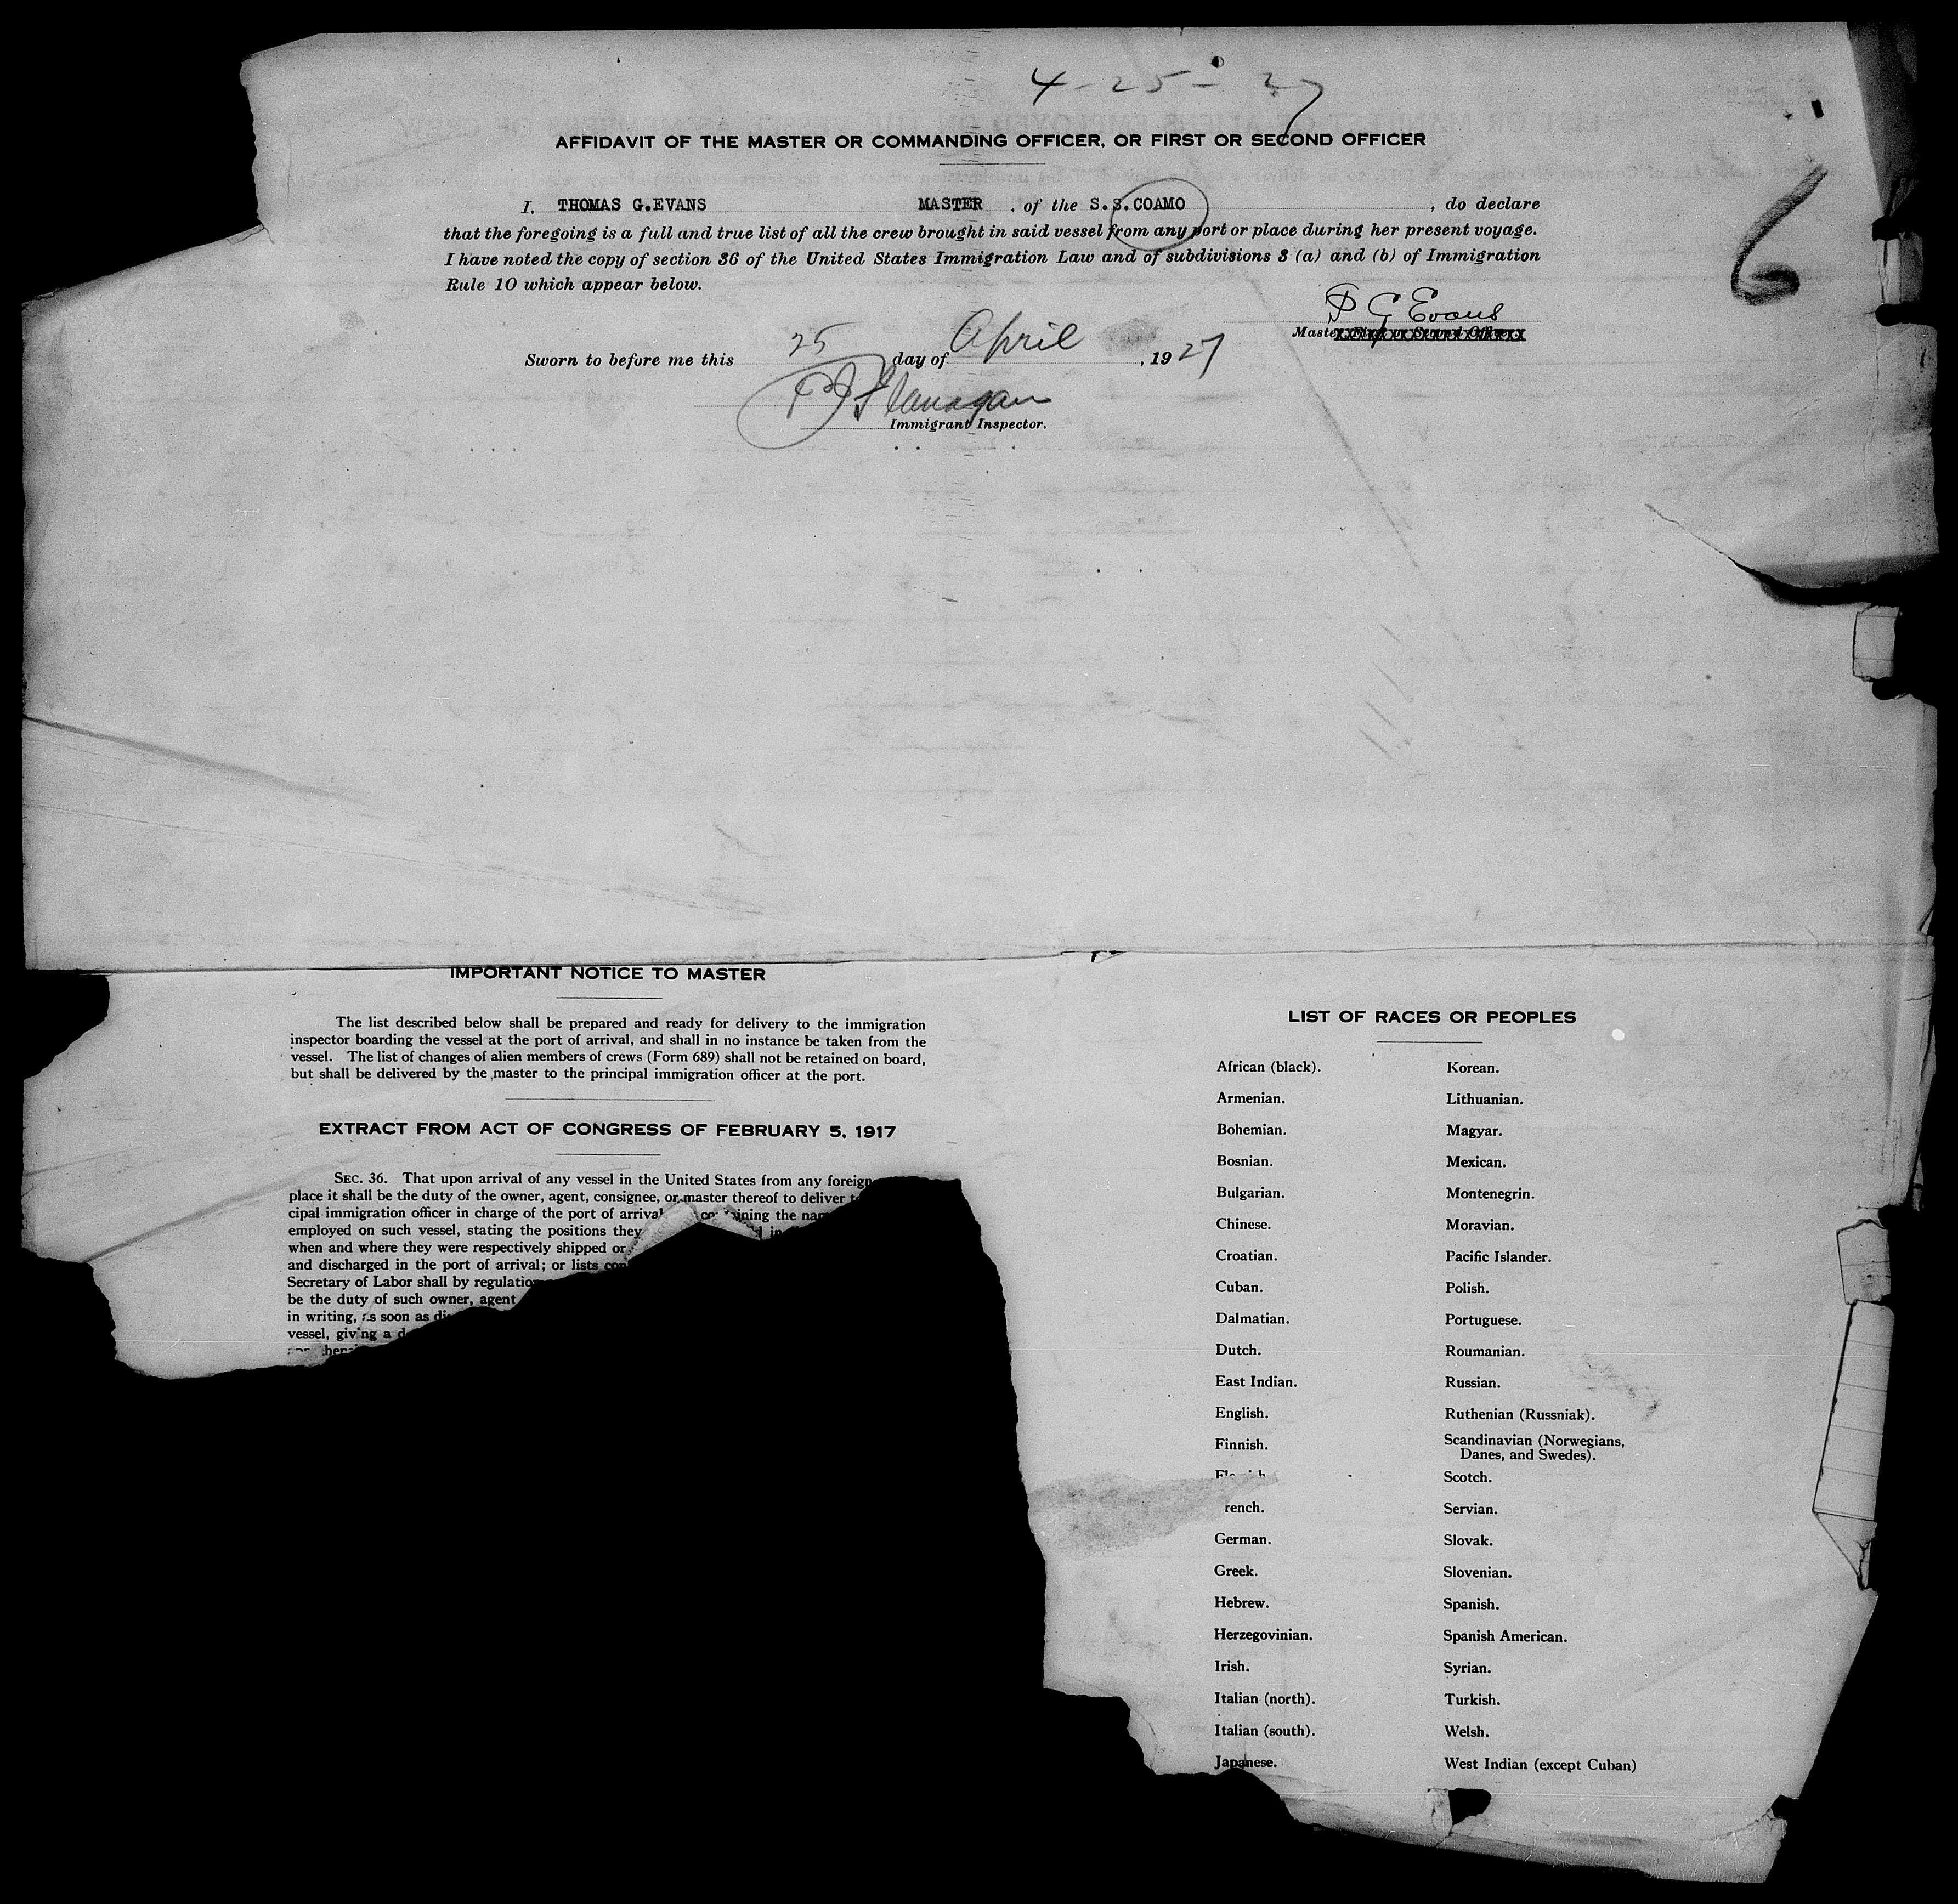 4-25-27
AFFIDAVIT OF THE MASTER OR COMMANDING OFFICER, OR FIRST OR SECOND OFFICER
6
I, THOMAS G.EVANS MASTER , of the S.S.COAMO , do declare
that the foregoing is a full and true list of all the crew brought in said vessel from any port or place during her present voyage.
I have noted the copy of section 36 of the United States Immigration Law and of subdivisions 3 (a) and (b) of Immigration
Rule 10 which appear below.
G Evans
Master
Sworn to before me this 25 day of April , 1927
Flanagan
Immigrant Inspector.
IMPORTANT NOTICE TO MASTER
The list described below shall be prepared and ready for delivery to the immigration
inspector boarding the vessel at the port of arrival, and shall in no instance be taken from the
vessel. The list of changes of alien members of crews (Form 689) shall not be retained on board,
but shall be delivered by the master to the principal immigration officer at the port.
EXTRACT FROM ACT OF CONGRESS OF FEBRUARY 5, 1917
SEC. 36. That upon arrival of any vessel in the United States from any foreign
place it shall be the duty of the owner, agent, consignee, or master thereof to deliver
cipal immigration officer in charge of the port of arrival the
employed on such vessel, stating the positions they
when and where they were respectively shipped or
and discharged in the port of arrival; or lists
Secretary of Labor shall by regulation
be the duty of such owner, agent
in writing, as soon as
vessel, giving a
LIST OF RACES OR PEOPLES
African (black).
Armenian.
Bohemian.
Bosnian.
Bulgarian.
Chinese.
Croatian.
Cuban.
Dalmatian.
Dutch.
East Indian.
English.
Finnish.
rench.
German.
Greek.
Hebrew.
Herzegovinian.
Irish.
Italian (north).
Italian (south).
Japanese.
Korean.
Lithuanian.
Magyar.
Mexican.
Montenegrin.
Moravian.
Pacific Islander.
Polish.
Portuguese.
Roumanian.
Russian.
Ruthenian (Russniak).
Scandinavian (Norwegians,
Danes, and Swedes).
Scotch.
Servian.
Slovak.
Slovenian.
Spanish.
Spanish American.
Syrian.
Turkish.
Welsh.
West Indian (except Cuban)